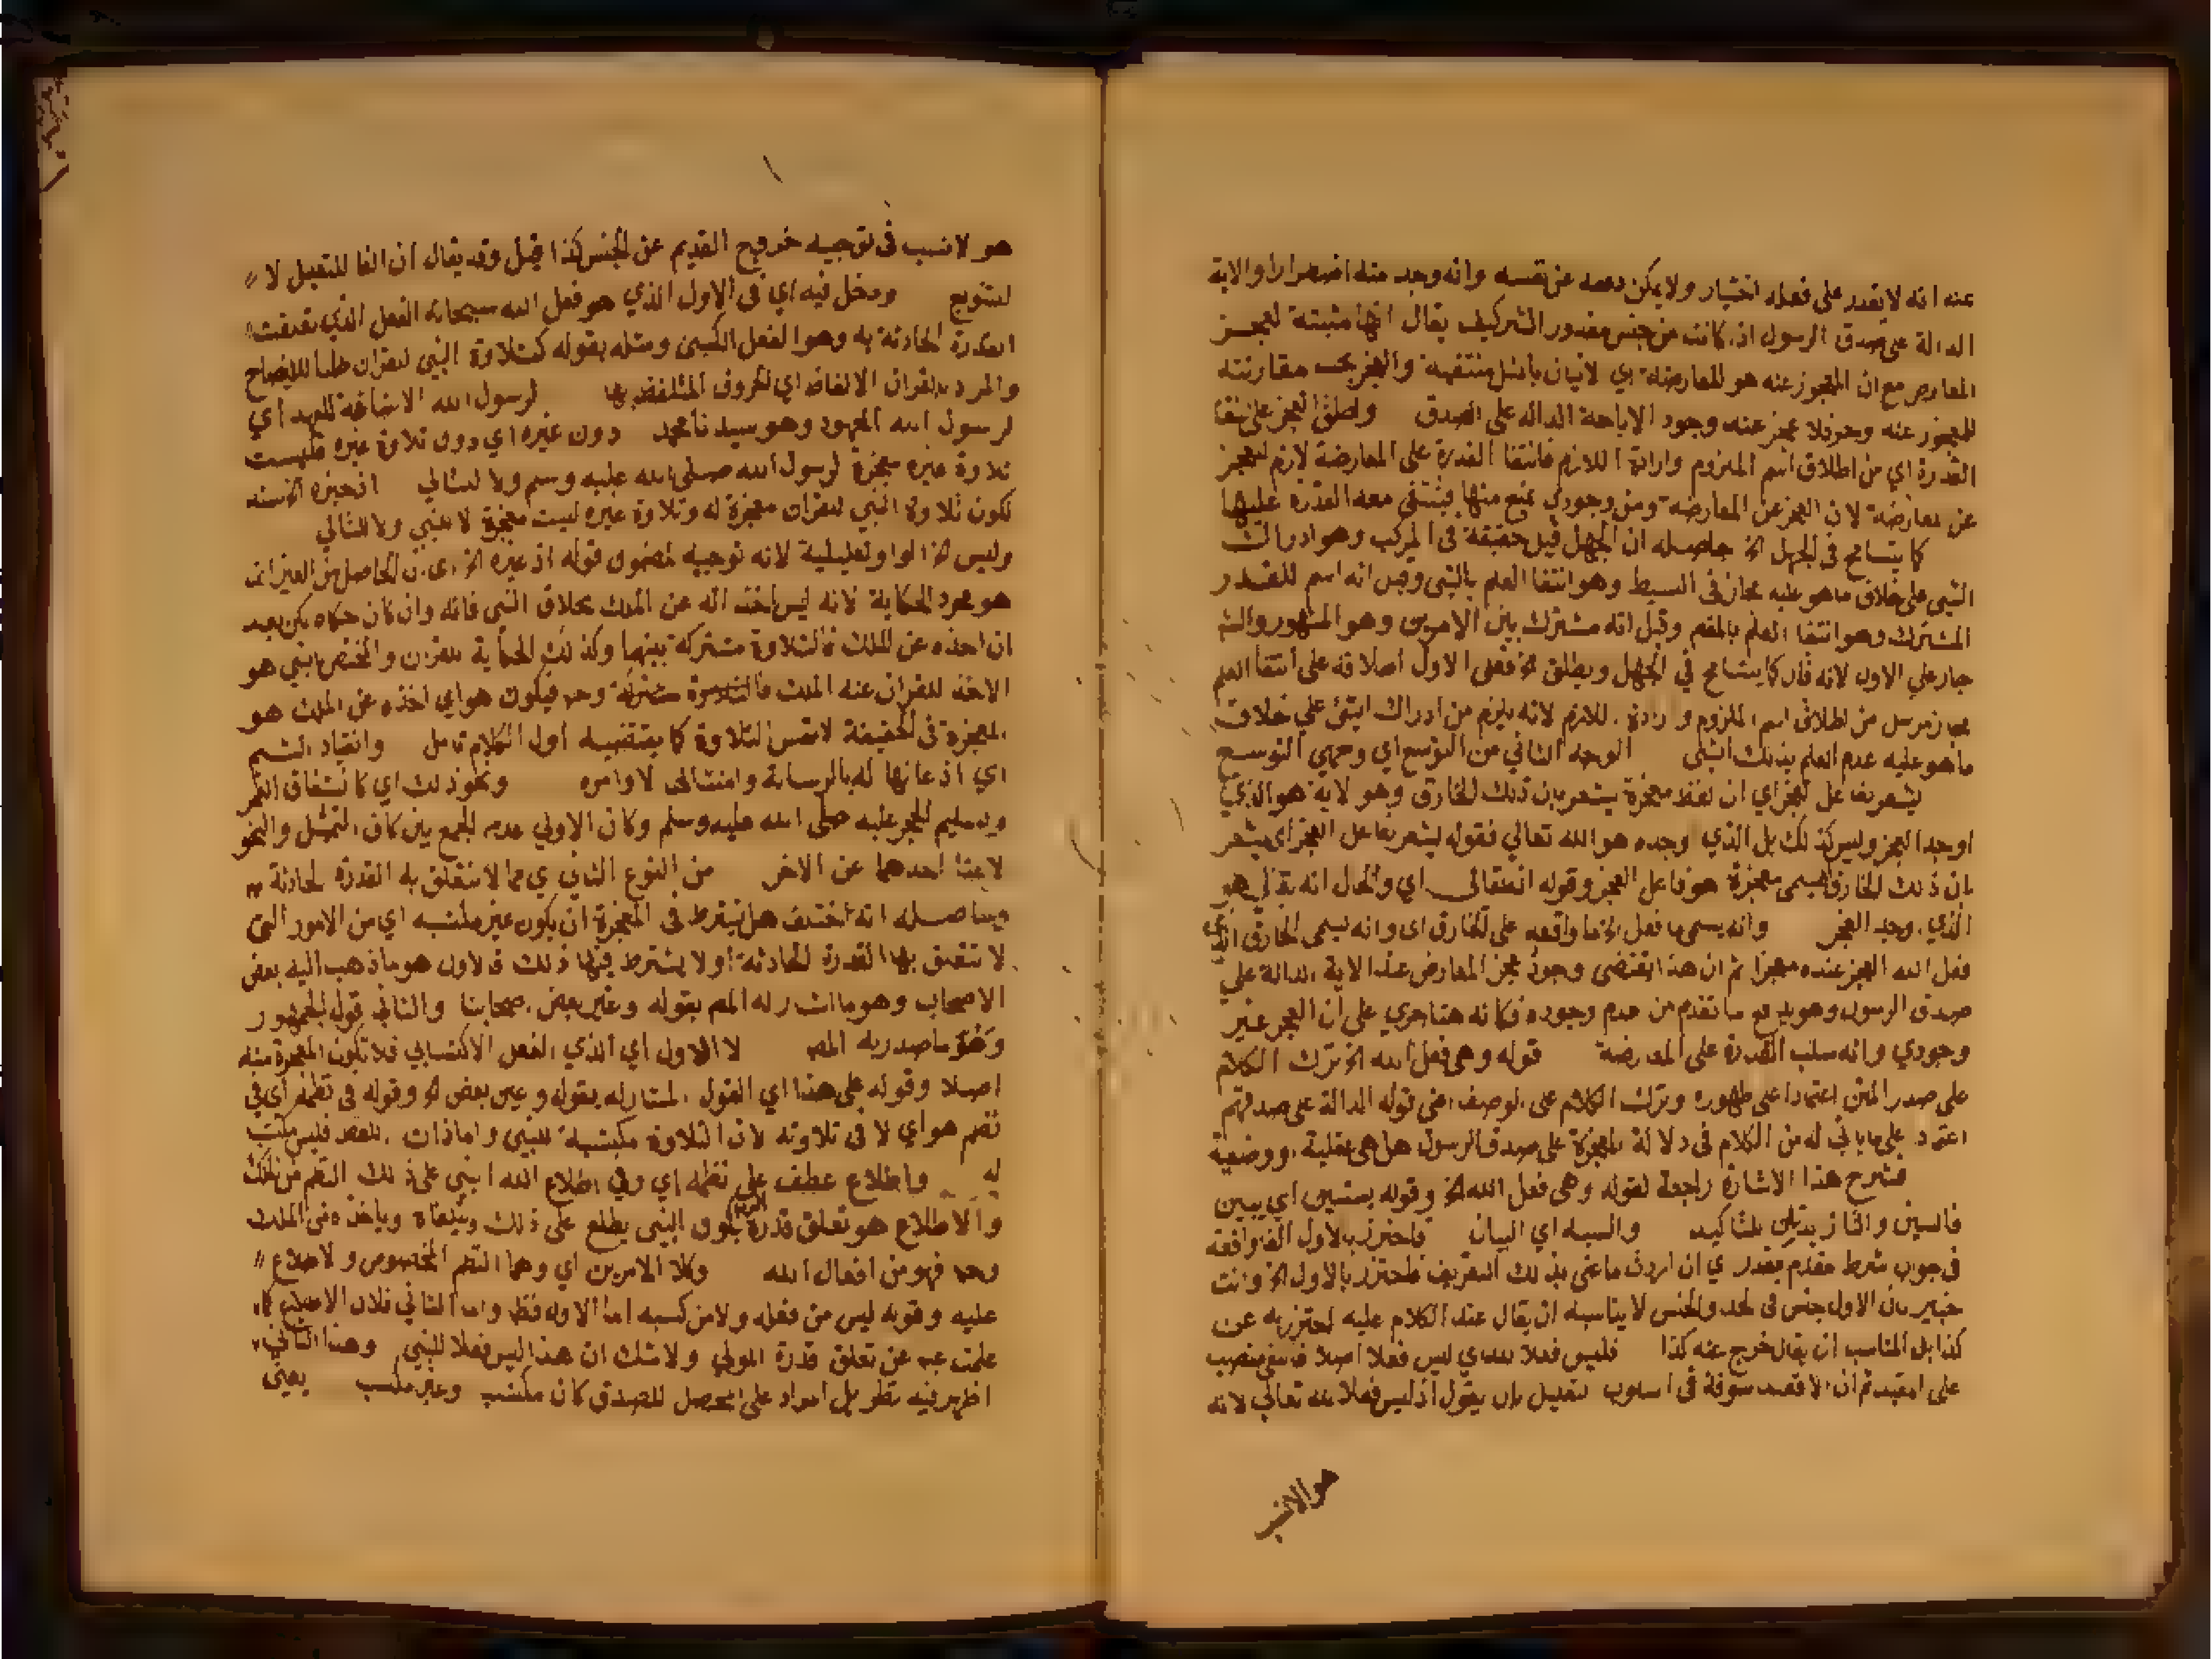 عنه انه لا يقدر على فعله اختيار ولا يمكن دفعه عن نفسه وانه وجد منه اضطرارا والاية
الدالة على صدق الرسول اذ كانت من جنس مقدور البشر كيف يقال انها مثبتة لعجز
المعارض مع ان المعجوز عنه هو المعارضة اي لاتيان بالمثل منتفية والعجز يجب مقارنته
للمعجوز عنه وجود الاية الدالة على الصدق واطلق العجز على انتفا
القدرة اي من اطلاق اسم الملزوم وارادة اللازم فانتفا القدرة على المعارضة لازم للعجز
عن معارضة لان العجز عن المعارضة ومن وجودي يمنع منها ينتفي معه القدرة عليها
كما يتسامح في الجهل الخ حاصله ان الجهل قيل حقيقة في المركب وهو ادراك
الشي على خلاف ما هو عليه مجاز في البسيط وهو انتفا العلم بالشي وقيل انه اسم للقدر
المشترك وهو انتفا العلم بالمقصد وقيل انه مشترك بين الامرين وهو المشهور والشم
جار على الاول لانه قال كما يتسامح في الجهل ويطلق الخ فعلى الاول اطلاقه على انتفا العلم
مجاز مرسل من اطلاق اسم الملزوم وارادة اللازم لانه يلزم من ادراك الشي على خلاف
ما هو عليه عدم العلم بذلك الشي الوجه الثاني من التوسع اي وجهي التوسع
يشعر بفاعل العجز اي ان لفظ معجزة يشعر بان ذلك الخارق وهو لاية هو الذي
اوجد العجز وليس كذلك بل الذي اوجده هو الله تعالى فقوله يشعر بفاعل العجز اي يشعر
بان ذلك الخارق المسمى معجزة هو فاعل العجز وقوله اي والحال انه تعالى هو
الذي اوجد العجز وانه يسمى ما فعل الخ ما واقعه على الخارق اي وانه يسمى الخارق الذي
فعل الله العجز عنده معجزا ثم ان هذا يقتضى وجود عجز المعارض عند الاية الدالة على
صدق الرسول وهو ما تقدم من عدم وجوده فكانه هنا جري على ان العجز غير
وجودي وانه سلب القدرة على المعارضة قوله وهي فعل الله الخ ترك الكلام
على صدر المتن اعتمادا على ظهوره وترك الكلام على الوصف اعني قوله الدالة على صدقهم
اعتماد على ما ياتي له من الكلام في دلالة المعجزة على صدق الرسول هل هي عقلية او وضعية
شرح هذا الاشارة راجعة لقوله وهي فعل الله الخ وقوله يستبين اي يبين
فالسين والتا زيدتا للتاكيد والسبه اي البيان فاحترز بالاول الفا واقعة
في جواب شرط مقدر اي ان اردت ما عنى بذلك التعريف فاحترز بالاول الخ وانت
خبير بان الاول جنس في الحد والجنس لا يناسبه ان يقال عند الكلام عليه احترز به عن
كذا بل المناسب ان يقال خرج عنه كذا فليس فعلا لله اي ليس فعلا اصلا
على ثم ان سوقه في اسلوب تعليل بان يقول اذ ليس فعلا لله تعالى لانه
هو الانسب
هو لانسب في توجيه خروج القديم عن الجنس كذا قيل وقد يقال ان الفا للتعليل لا
لتنويع ودخل فيه اي في الاول الذي هو فعل الله سبحانه الفعل الذي تعلقت
القدرة الحادثة به وهو الفعل الكسبي ومثله بقوله كتلاوة النبي للقران
والمراد بالقران الالفاظ اي الحروف المتلفظ بها لرسول الله الاضافة للعهد اي
لرسول الله المعهود وهو سيدنا محمد دون غيره اي دون تلاوة غيره فليست
تلاوة غيره معجزة لرسول الله صلى الله عليه وسلم ولا للتالي اذ غيره الخ
لكون تلاوة النبي للقران معجزة له وتلاوة غيره ليست معجزة لا للنبي ولا للتالي
وليس الخ الواو تعليلية لانه توجيه لمضمون قوله اذ غيره الخ اي ان الحاصل من الغير انما
هو مجرد الحكاية لانه ليس اخذ له عن الملك بخلاف النبي فانه وان كان حكاه لكن بعد
ان اخذه عن الملك فالتلاوة مشتركة بينهما وكذلك الحكاية للقران والمختص بالنبي هو
الاخذ للقران عنه الملك فالتلاوة مشتركة وحده فيكون هو اي اخذه عن الملك هو
المعجزة في الحقيقة لا نفس التلاوة كما يقتضيه اول الكلام تامل وانقياد الشجر
اي اذعانها له بالرسالة وامتثالها لاوامره ونحو ذلك اي كانشقاق القمر
وتسليم الحجر عليه صلى الله عليه وسلم وكان الاولي عدم الجمع بين كاف التمثيل والنحو
لاغنا احدهما عن الاخر من النوع الثاني اي مما لا تتعلق به القدرة الحادثة
وحاصله انه اختلف هل يشترط في المعجزة ان يكون غير مكتسبه اي من الامور التي
لا تتعلق بها القدرة الحادثة او لا يشترط فيها ذلك فالاول هو ما ذهب اليه بعض
الاصحاب وهو ما اشار له المص بقوله وعين بعض اصحابنا والثاني قول الجمهور
وهو ما صدر به المص لا الاول اي الذي الفعل الاكتسابي فلا تكون المعجزة منه
اصلا وقوله على هذا اي القول المشار له بقوله وعين بعض الخ وقوله في نظمه اي في
نظم هو اي لا في تلاوته لان التلاوة مكتسبة للنبي واما ذات النظم فليس مكتسب
له واطلاع عطف على نظمه اي وفي اطلاع الله النبي على ذلك النظم من الملك
والاطلاع هو تعلق قدرة المولى بكون النبي يطلع على ذلك ويتلقاه وياخذه من الملك
وحده فهو من افعال الله وكلا الامرين اي وهما النظم المخصوص والاطلاع
عليه وقوله ليس من فعله ولا من كسبه اما الاول فظ واما الثاني فلان الاطلاع كما
علمت عبر عن تعلق قدرة المولي ولا شك ان هذا ليس فعلا للنبي وهذا الثاني
اظهر فيه نظر بل المراد على المحصل للصدق كان مكتسب وغير مكتسب يعني